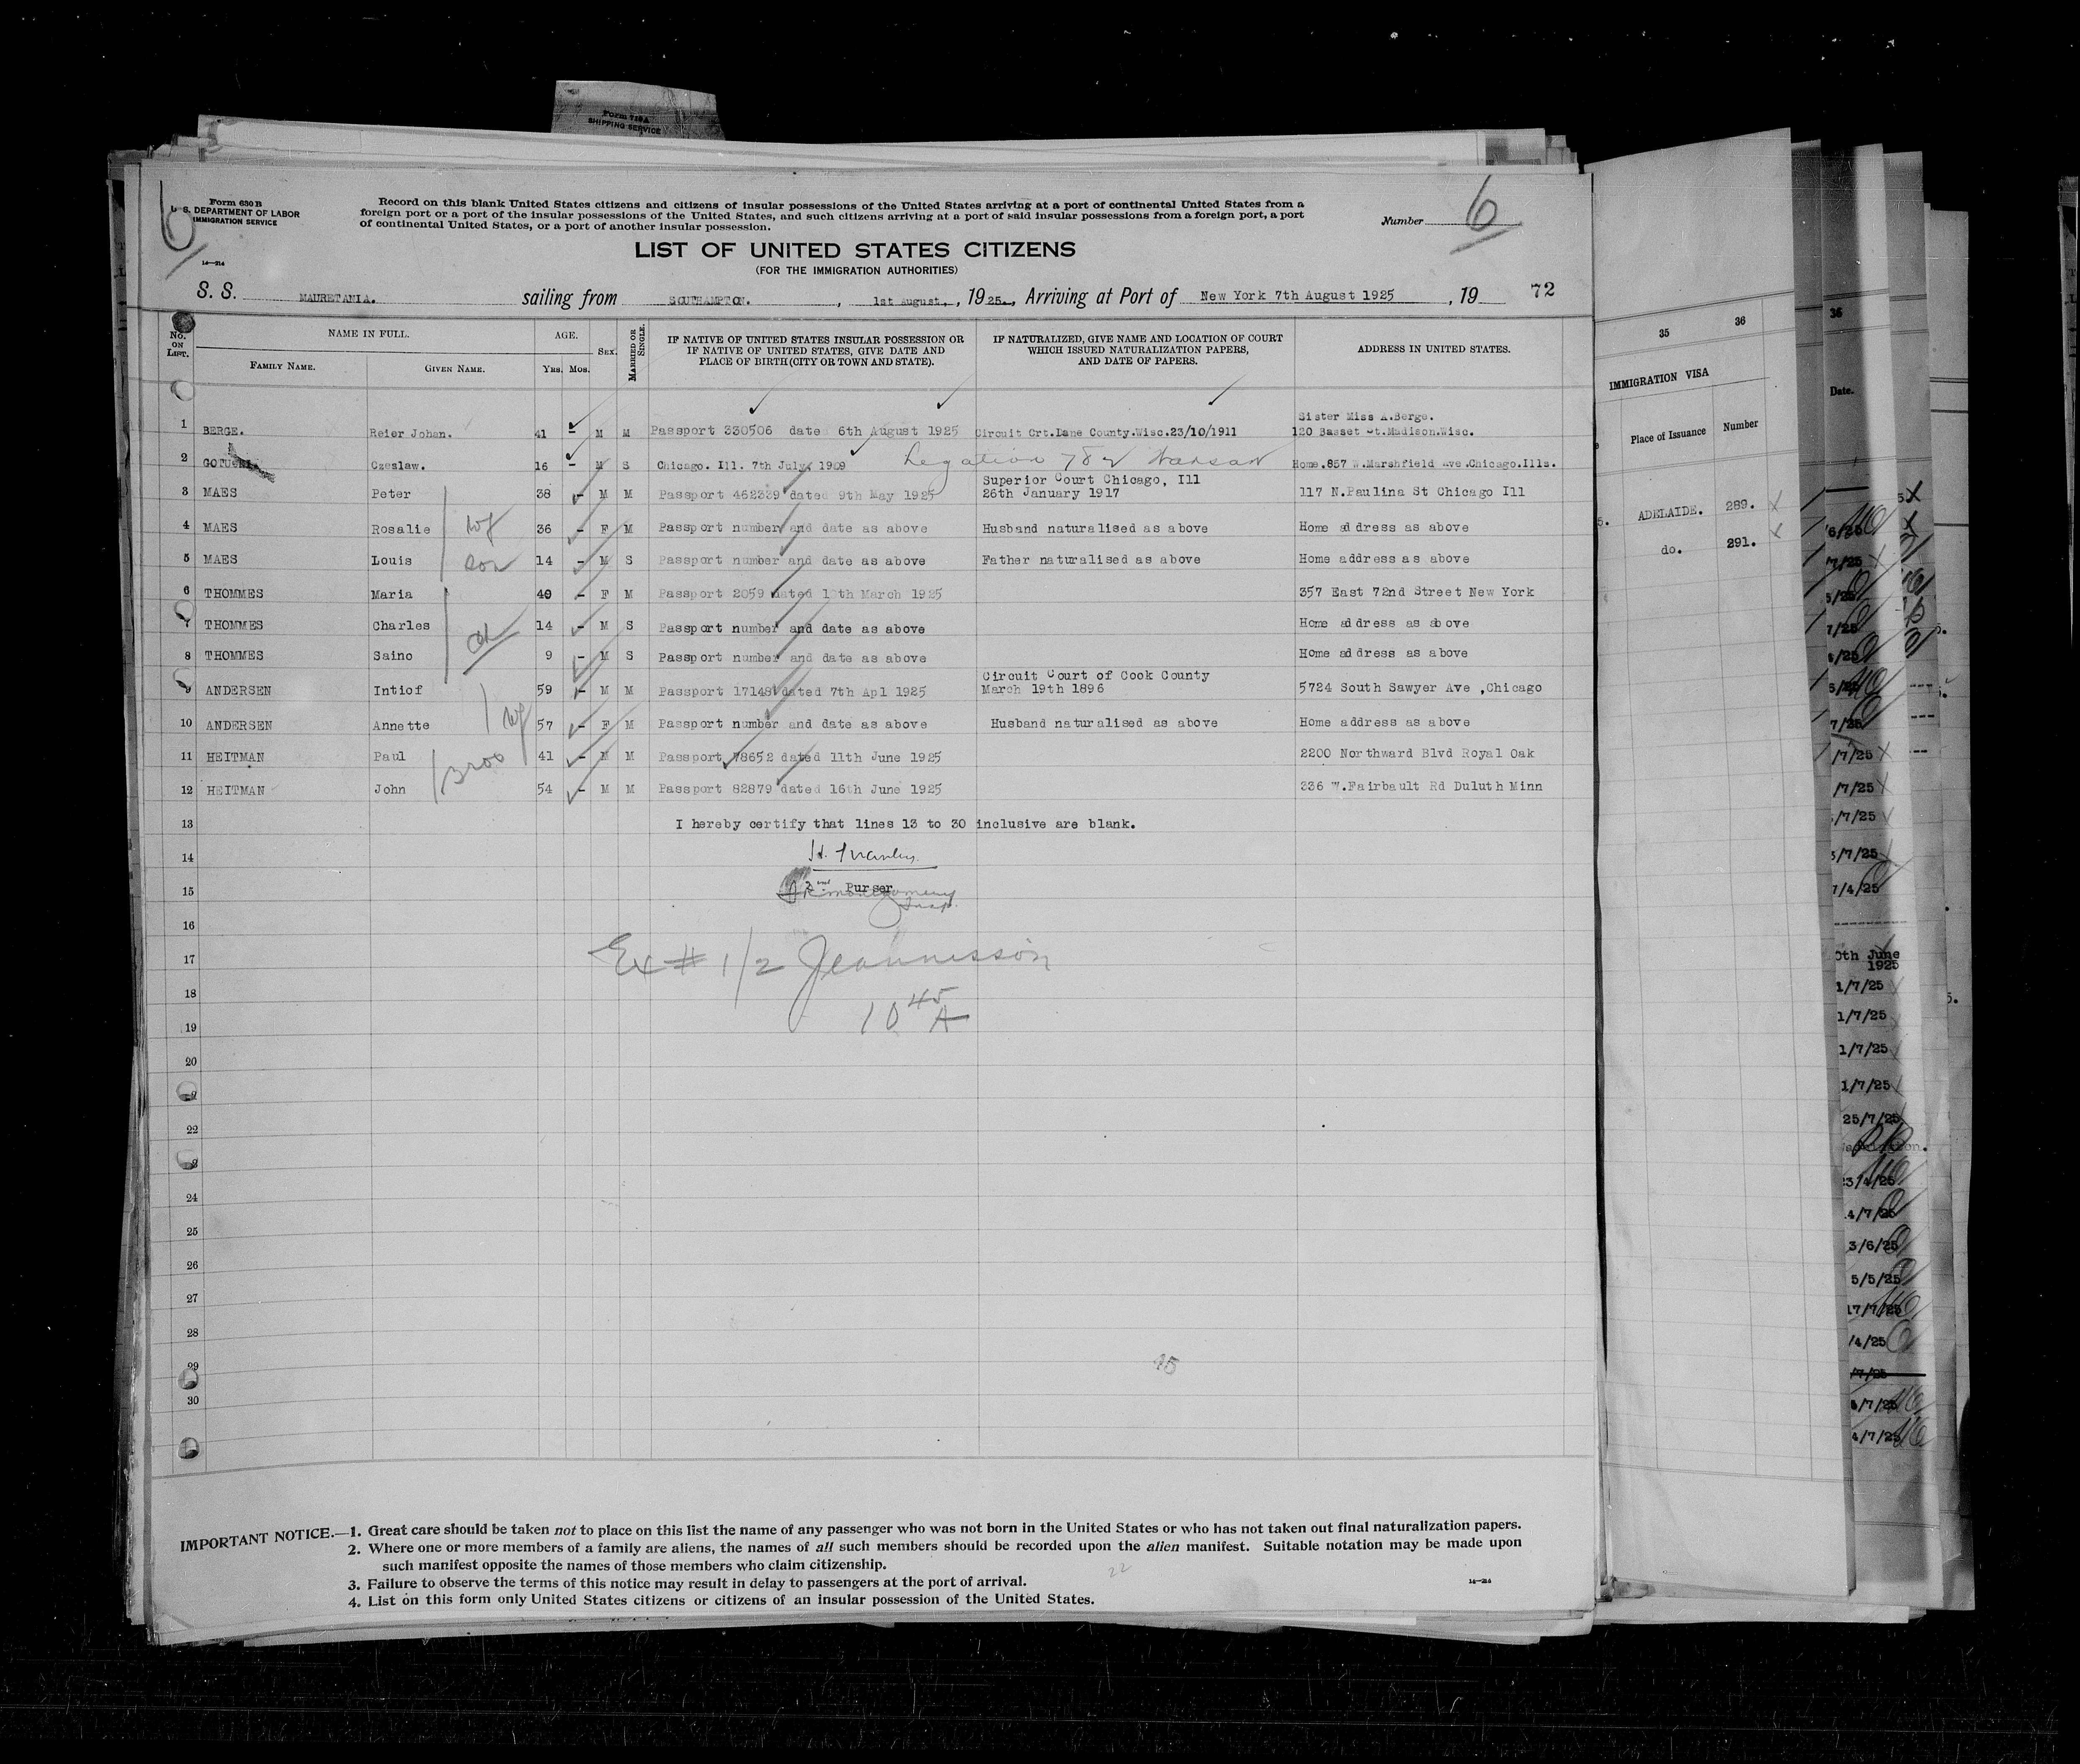 Form 728A
SHIPPING SERVICE
Form 630 B
U. S. DEPARTMENT OF LABOR
IMMIGRATION SERVICE
6
Record on this blank United States citizens and citizens of insular possessions of the United States arriving at a port of continental United States from a
foreign port or a port of the insular possessions of the United States, and such citizens arriving at a port of said insular possessions from a foreign port, a port
of continental United States, or a port of another insular possession.
Number 6
LIST OF UNITED STATES CITIZENS
(FOR THE IMMIGRATION AUTHORITIES)
14—214
S. S. MAURETANIA. sailing from SOUTHAMPTON. , 1st August. , 1925., Arriving at Port of New York 7th August 1925 , 19 72
No. ON LIST. NAME IN FULL. AGE. SEX. MARRIED OR SINGLE. IF NATIVE OF UNITED STATES INSULAR POSSESSION OR IF NATIVE OF UNITED STATES, GIVE DATE AND PLACE OF BIRTH (CITY OR TOWN AND STATE). IF NATURALIZED, GIVE NAME AND LOCATION OF COURT WHICH ISSUED NATURALIZATION PAPERS, AND DATE OF PAPERS. ADDRESS IN UNITED STATES.
FAMILY NAME. GIVEN NAME. YRS. MOS.
Sister Miss A.Berge.
1 BERGE. Reier Johan. 41 - M M Passport 330506 date 6th August 1925 Circuit Crt.Dane County.Wisc.23/10/1911 120 Basset St.Madison.Wisc.
2 Czeslaw. 16 - M S Chicago. Ill. 7th July. 1909 Legation Warsaw Home.857 W.Marshfield Ave.Chicago.Ills.
Superior Court Chicago, Ill
3 MAES Peter 38 - M M Passport 462339 dated 9th May 1925 26th January 1917 117 N.Paulina St Chicago Ill
4 MAES Rosalie wf 36 - F M Passport number and date as above Husband naturalised as above Home address as above
5 MAES Louis son 14 - M S Passport number and date as above Father naturalised as above Home address as above
6 THOMMES Maria 40 - F M Passport 2059 dated 1 th March 1925 357 East 72nd Street New York
7 THOMMES Charles ch 14 - M S Passport number and date as above Home address as above
8 THOMMES Saino 9 - M S Passport number and date as above Home address as above
Circuit Court of Cook County
9 ANDERSEN Intiof 59 - M M Passport 17148 dated 7th Apl 1925 March 19th 1896 5724 South Sawyer Ave ,Chicago
10 ANDERSEN Annette wf 57 - F M Passport number and date as above Husband naturalised as above Home address as above
11 HEITMAN Paul 41 - M M Passport 78652 dated 11th June 1925 2200 Northward Blvd Royal Oak
12 HEITMAN John 54 - M M Passport 82879 dated 16th June 1925 336 W.Fairbault Rd Duluth Minn
13 I hereby certify that lines 13 to 30 inclusive are blank.
14
15 2nd Purser
16
17 Ex # 1/2 Jeannisson
18 10 45 A
19
20
22
24
25
26
27
28
29
30
IMPORTANT NOTICE.—1. Great care should be taken not to place on this list the name of any passenger who was not born in the United States or who has not taken out final naturalization papers.
2. Where one or more members of a family are aliens, the names of all such members should be recorded upon the alien manifest. Suitable notation may be made upon
such manifest opposite the names of those members who claim citizenship.
3. Failure to observe the terms of this notice may result in delay to passengers at the port of arrival.
4. List on this form only United States citizens or citizens of an insular possession of the United States.
22
14—214
35 36
IMMIGRATION VISA
Place of Issuance Number
ADELAIDE. 289.
do. 291.
36
Date.